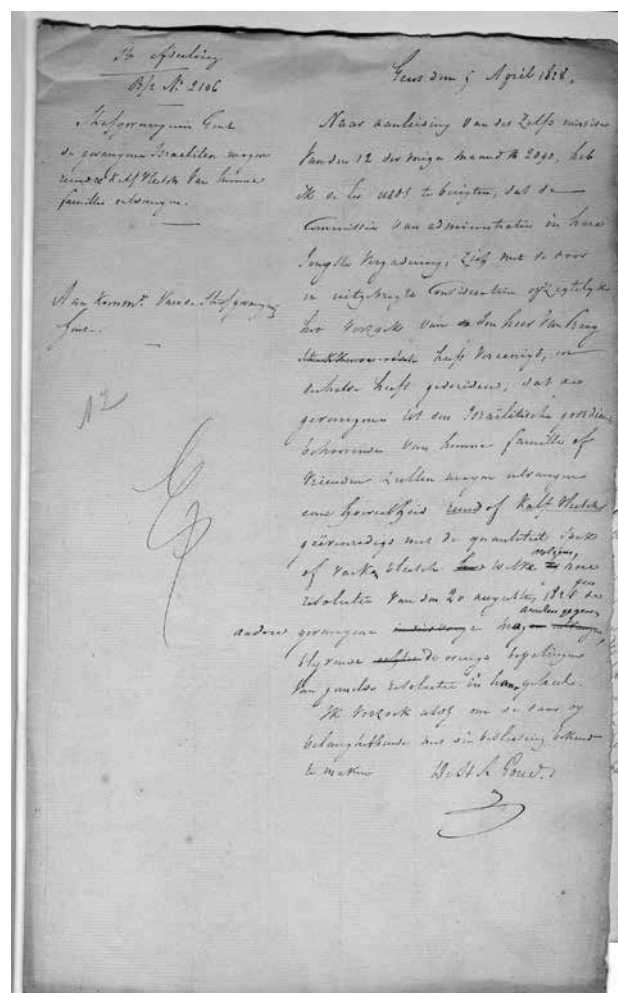 Afdeeling
B/z No 2106
Strafgevangenis Gent
de gevangene Israeliten mogen
rund & Kalf Vleesch Van hunne
familie ontvangen.
Aan Komm.t Van de Strafgevangen
huis.
Gent den 5 April 1828.
Naar aanleiding Van des Zelfs missive
Van den 12 der vorige maand No 2090, heb
ik de eer UEDG te berigten, dat de
Commissie van administratie in hare
Vergadering, Zich met de door
U uitgebragte Consideratien opzigtelyk
het Verzoek van den heer Van
heeft Vereenigd, en
heeft, dat de
gevangene tot de Israëlitische
behoorende Van hunne familie of
Vrienden Zullen mogen ontvangen
eene hoeveelheid rund of Kalf Vleesch
geëvenredigd met de quantiteit Spek
of Varken Vleesch Welke volgens hare
resolutie Van den 20 augustus 182 de
andere gevangene mag worden gegeven,
blyvende de overige bepalingen
Van gemelde resolutie in haar geheel.
Ik Verzoek UEDG om de daar by
belanghebbende met die beslissing bekend
te maken